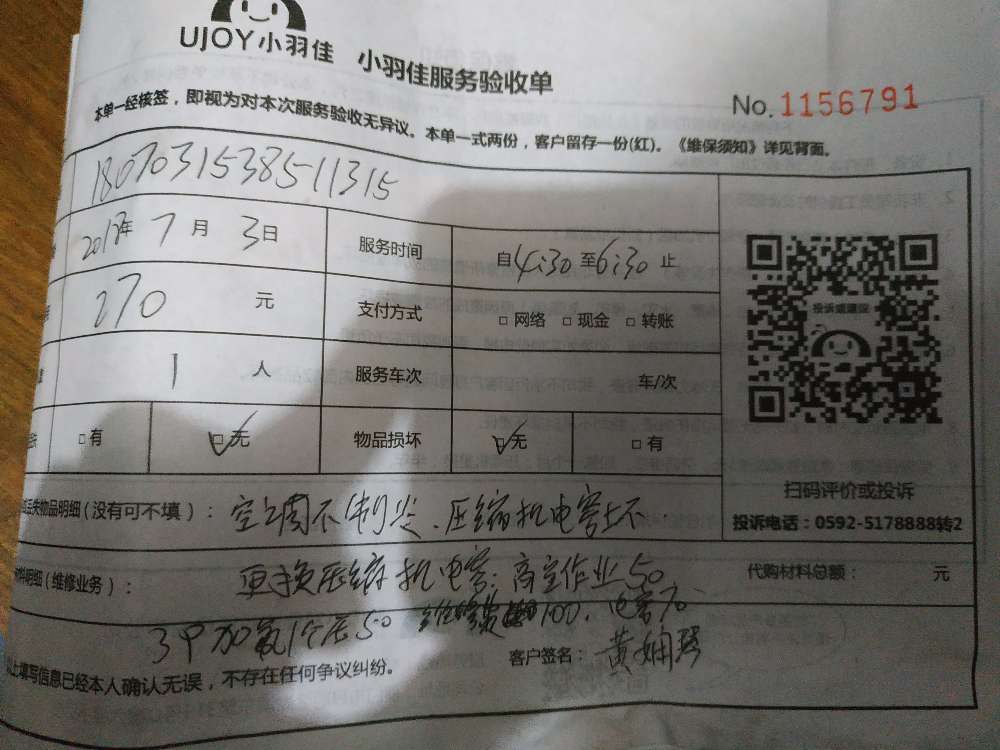 UJOY小羽佳 小羽佳服务验收单
No.1156791
本单一经核签，即视为对本次服务验收无异议。本单一式两份，客户留存一份(红)。《维保须知》详见背面。
1807031538511315
2018年 7 月 3日 服务时间 自4:30至6:30止
270 元 支付方式 □网络 □现金 □转账
1 人 服务车次 车/次
□有 ☑无 物品损坏 ☑无 □有
投诉或建议
扫码评价或投诉
投诉电话：0592-5178888转2
丢失物品明细(没有可不填)： 空调不制冷、压缩机电容坏
料明细(维修业务)： 更换压缩机电容：高空作业50、
代购材料总额： 元
3P加氟1个压50 维修费100、电容70
客户签名： 黄娴琴
以上填写信息已经本人确认无误，不存在任何争议纠纷。